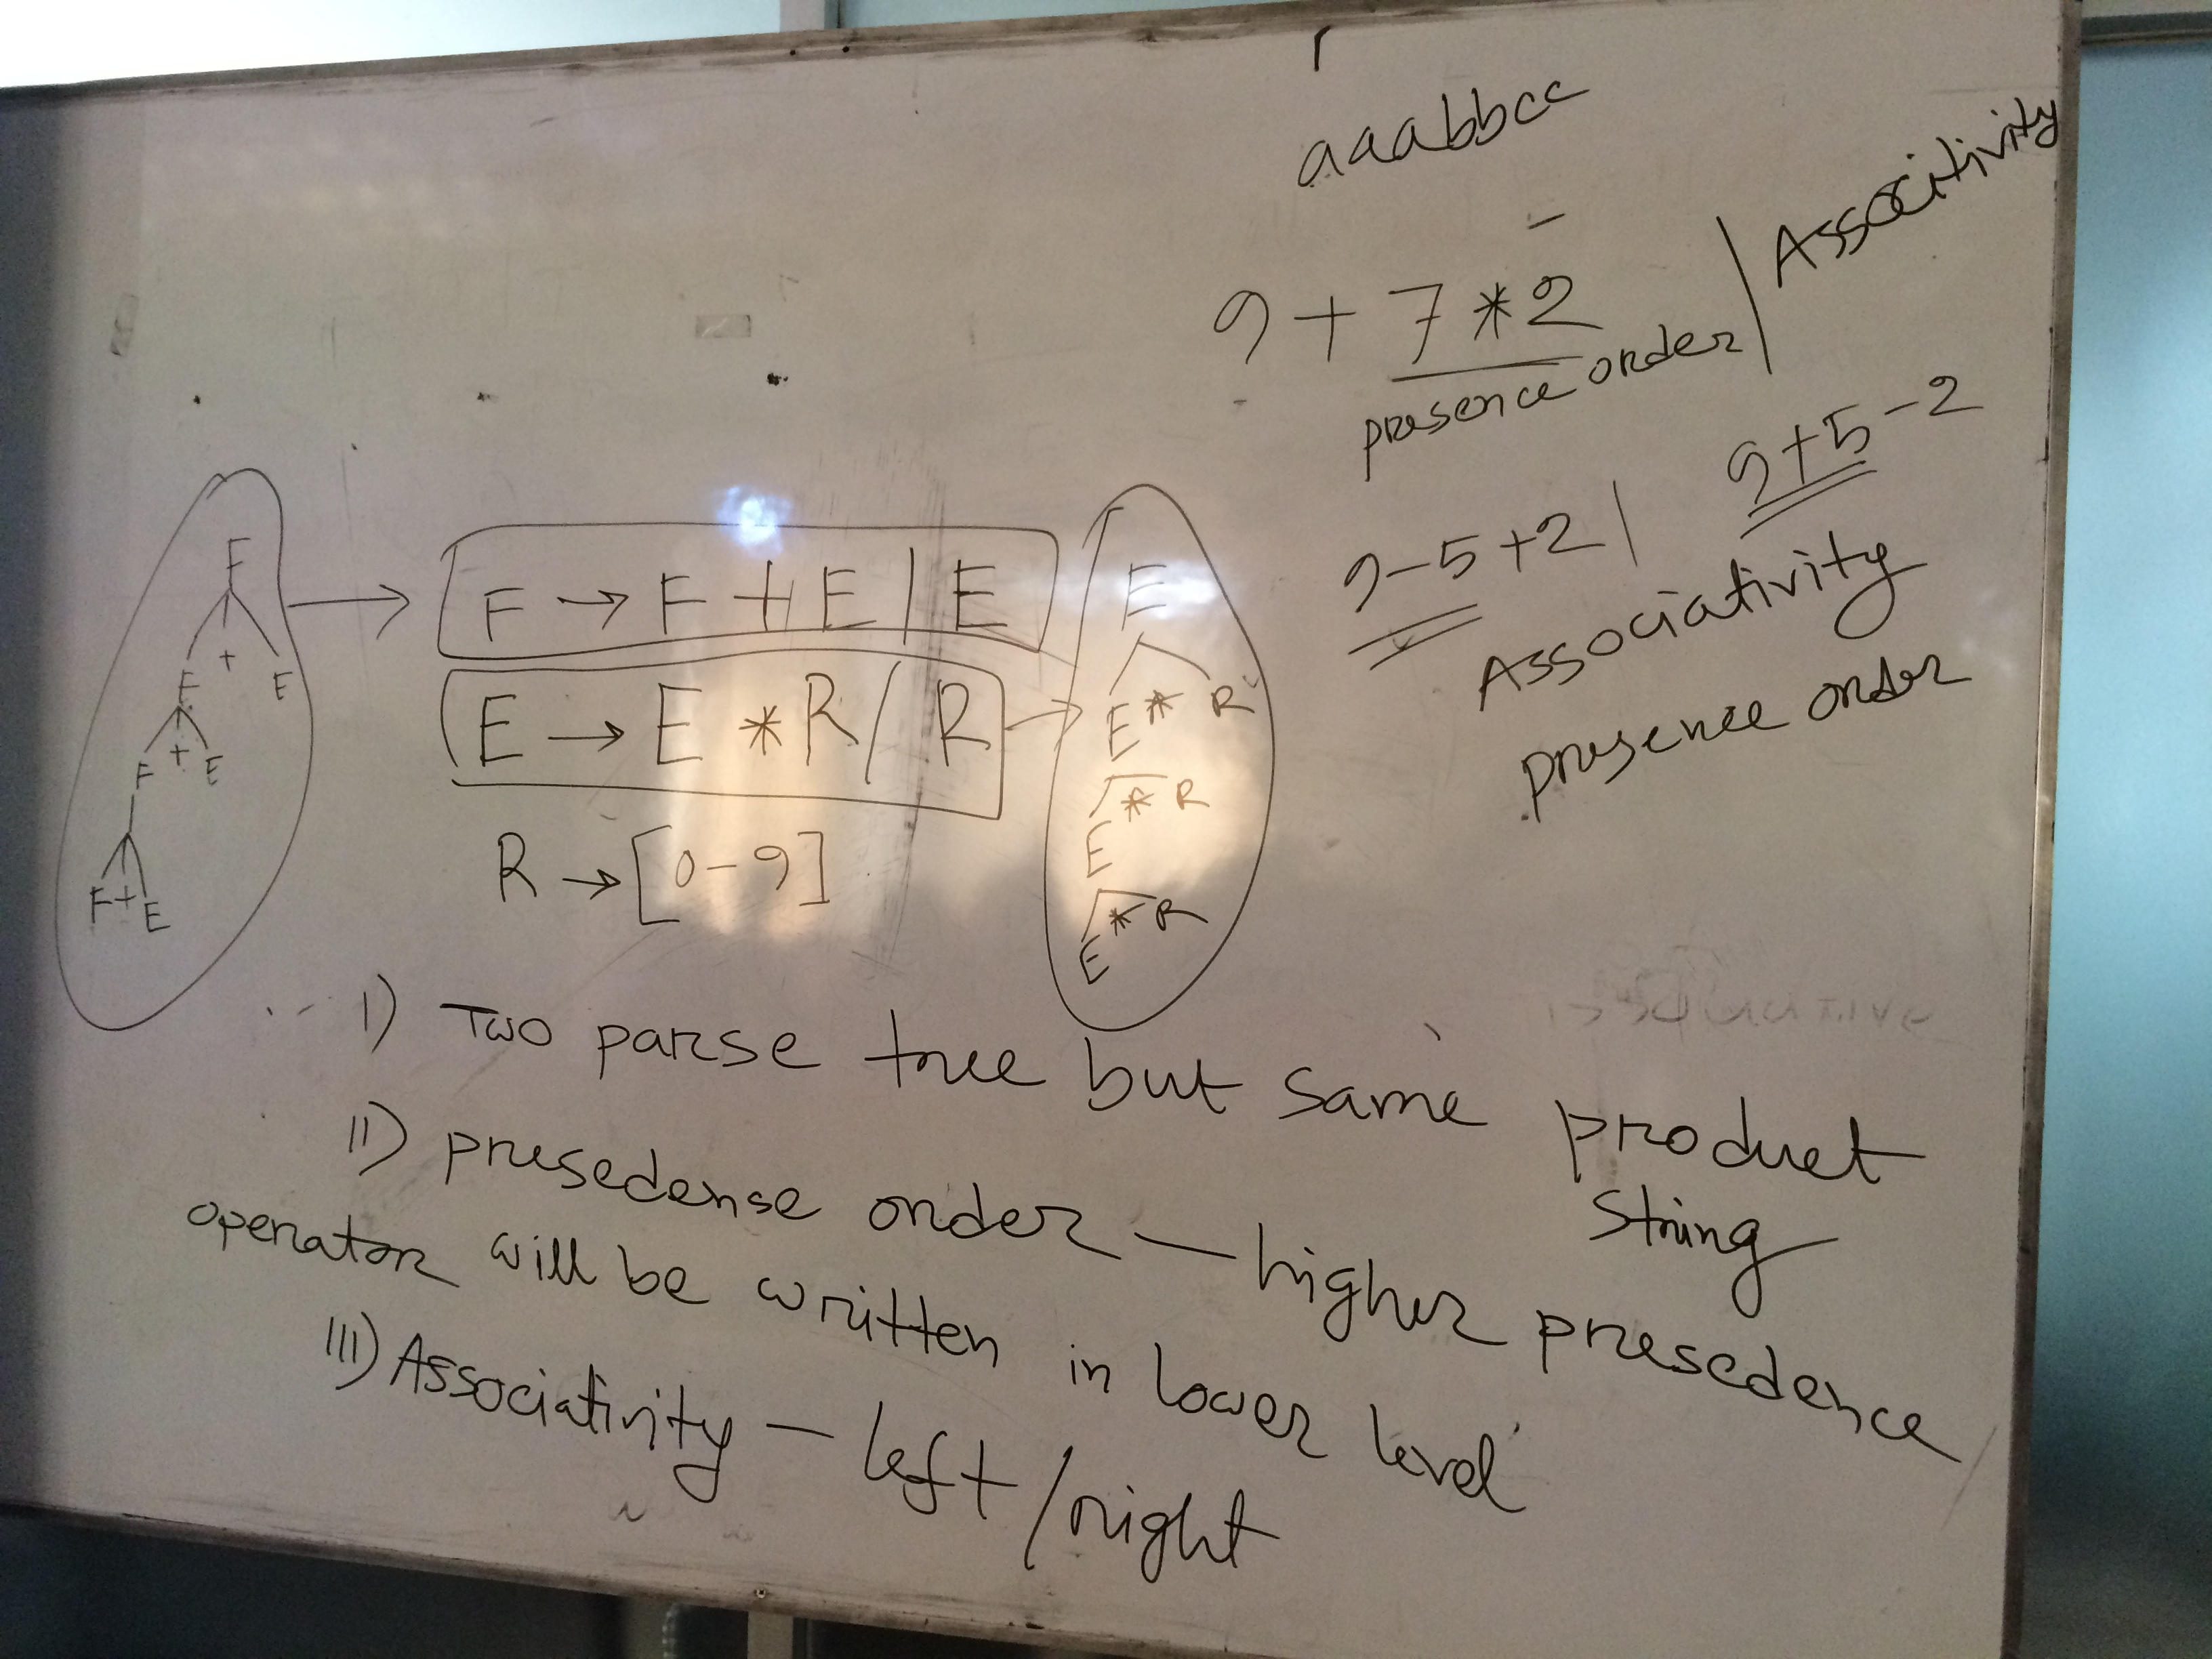 aaabbcc
9 + 7 * 2
presence order / Associtivity
9-5+2 | 9+5-2
Associativity
presence order
F → F + E | E
E → E * R / R
R → [0-9]
F
+
F E
+
F E
F + E
E
E * R
* R
E
* R
E
I) Two parse tree but same product
string
II) presedense order — higher presedence
operator will be written in lower level
III) Associativity — left / right